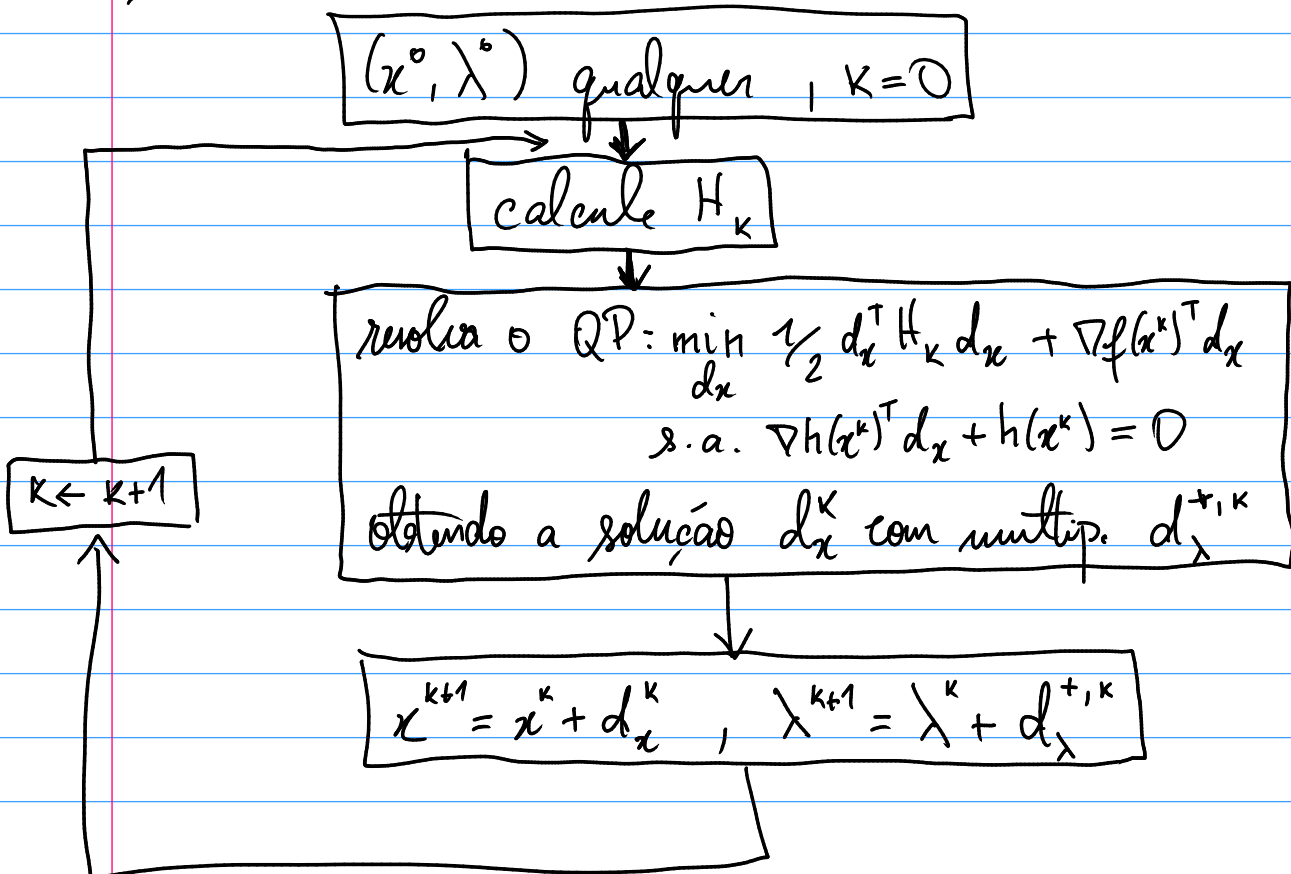 (x⁰, λ⁰) qualquer , k=0
calcule H_k
resolva o QP: min 1/2 d_xᵀ H_k d_x + ∇f(xᵏ)ᵀ d_x
d_x
s.a. ∇h(xᵏ)ᵀ d_x + h(xᵏ) = 0
k ← k+1
obtendo a solução d_xᵏ com multip. d_λ^{+,k}
x^{k+1} = xᵏ + d_xᵏ , λ^{k+1} = λᵏ + d_λ^{+,k}